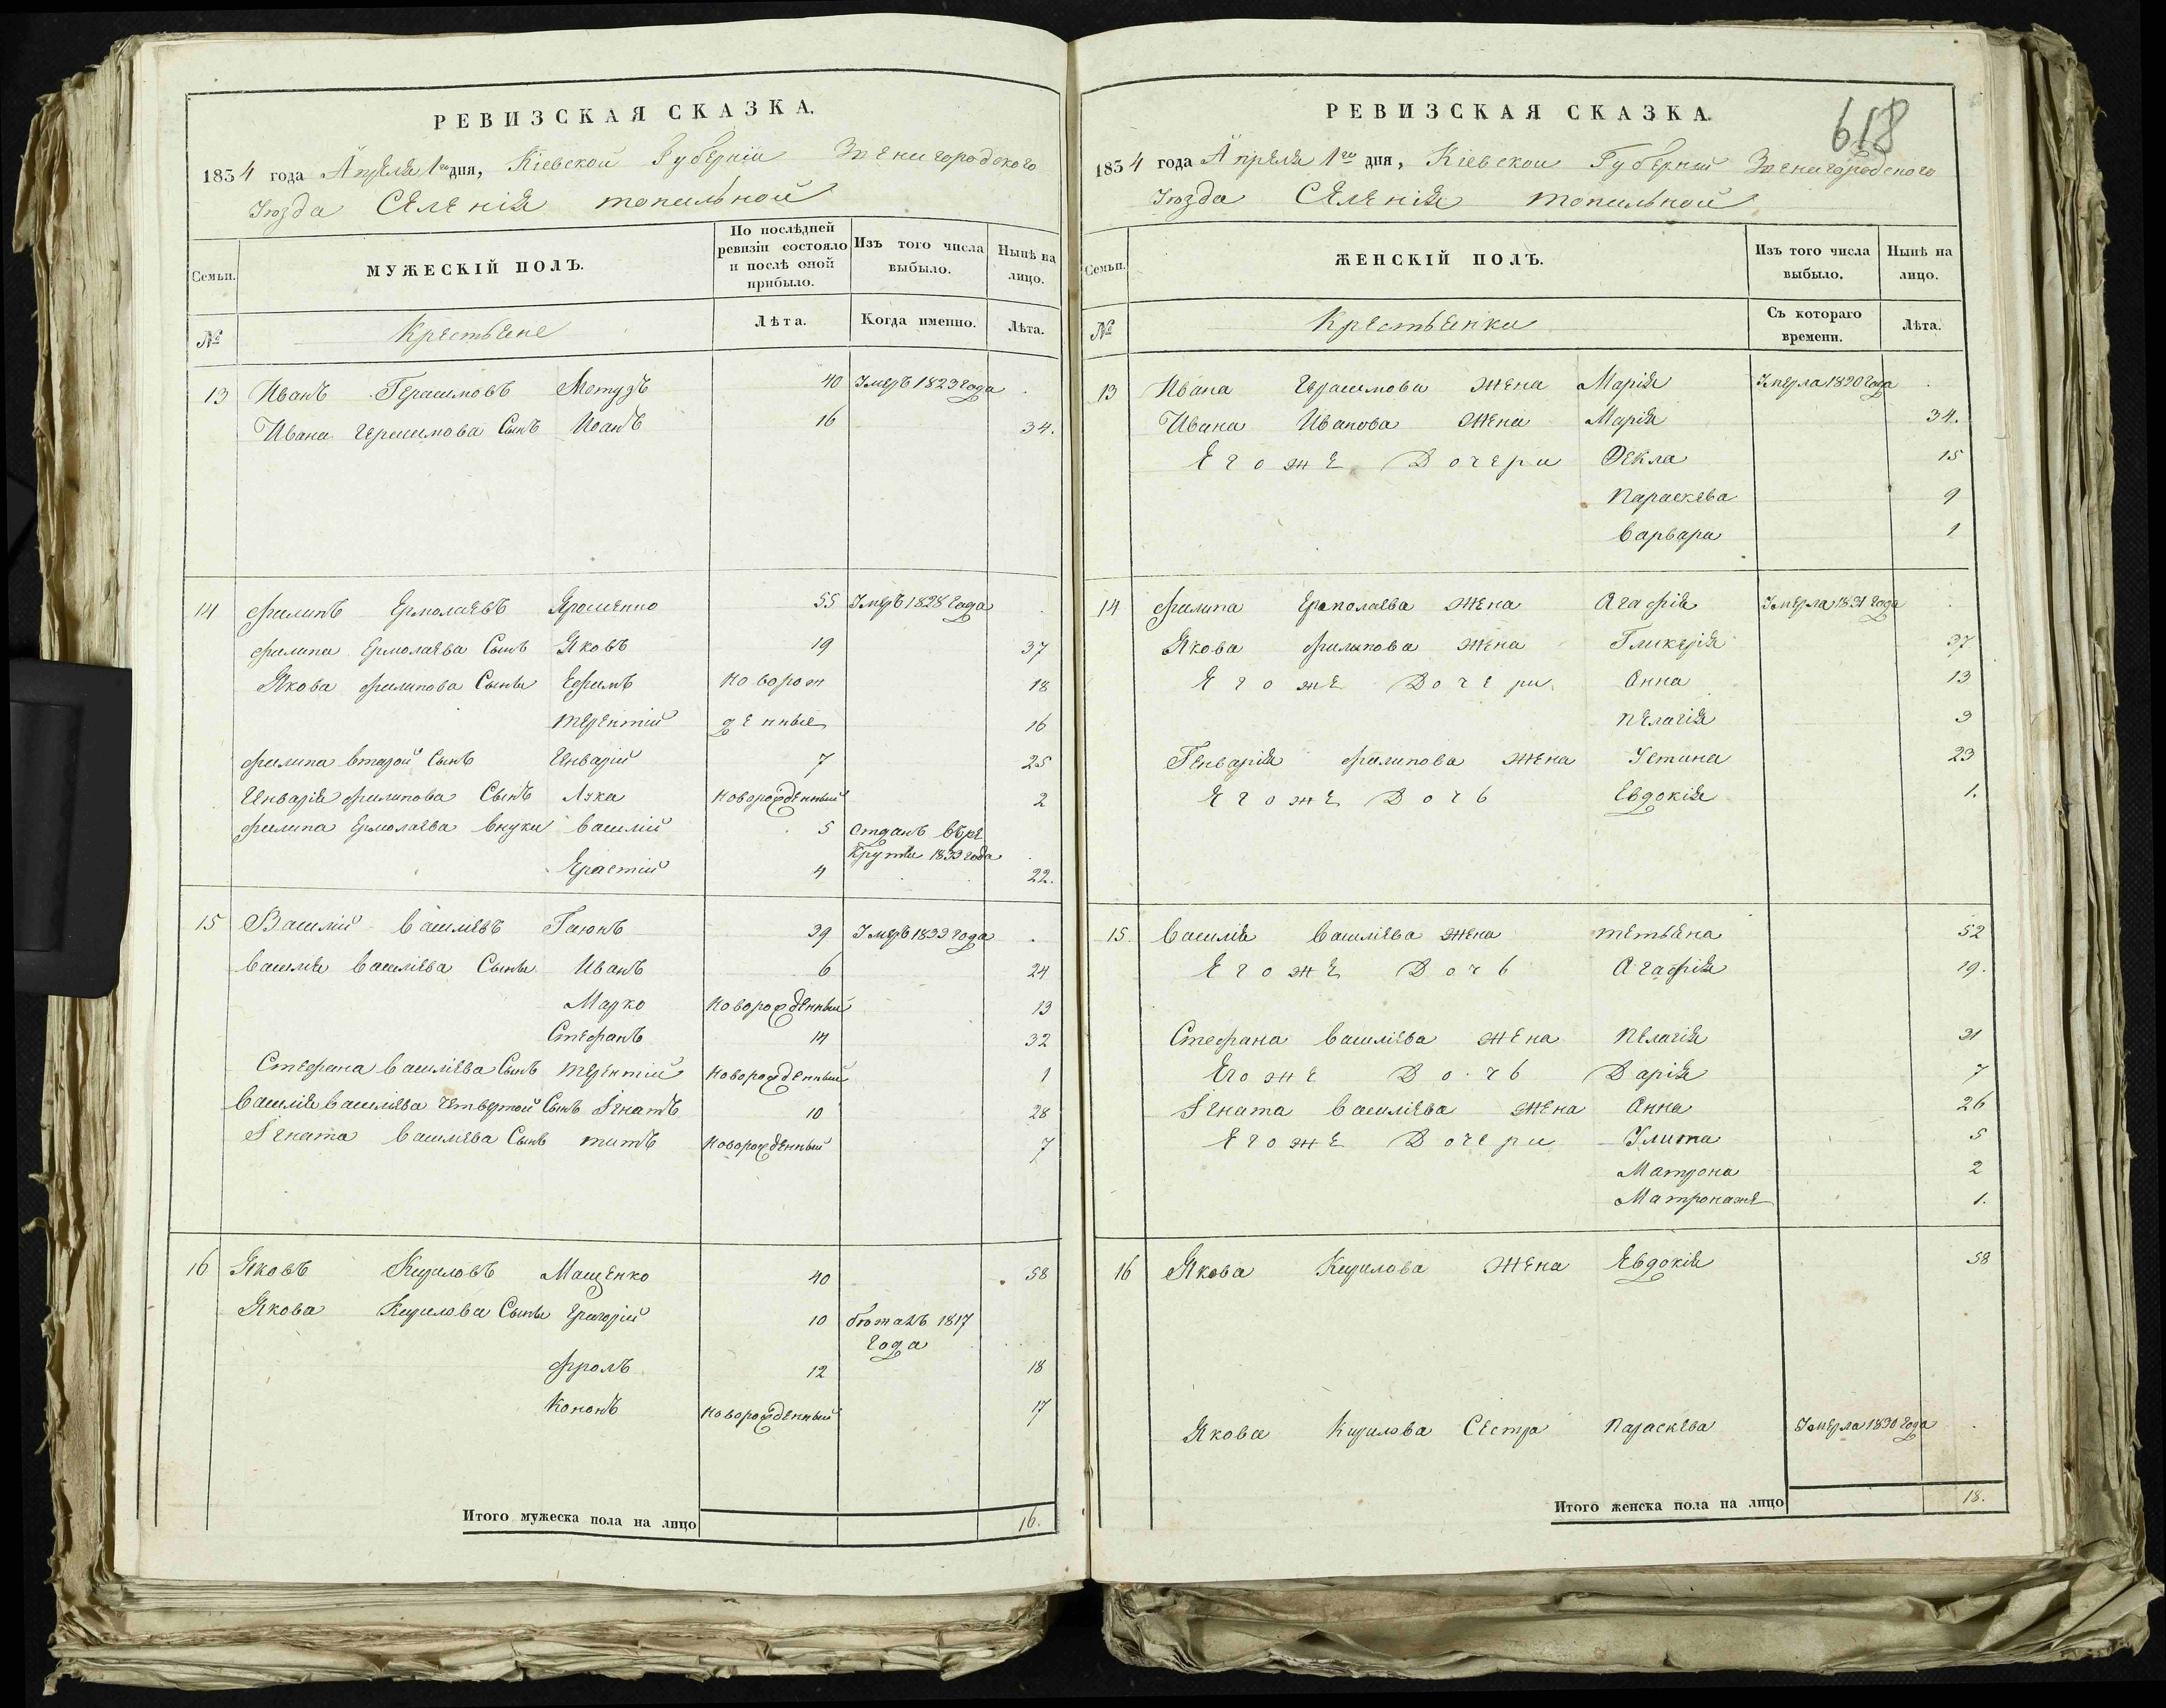 РЕВИЗСКАЯ СКАЗКА.
1834 года Апреля 1го дня, Кіевской Губерніи Звенигородского
Уѣзда Селенія топильной
Семьи.
МУЖЕСКІЙ ПОЛЪ.
По послѣдней ревизіи состояло и послѣ оной прибыло.
Изъ того числа выбыло.
Нынѣ на лицо.
№
Крестьяне
Лѣта.
Когда именно.
Лѣта.
13 Иванъ Герасимовъ Мотузъ 40 Умеръ 1823 года .
Ивана Герасимова Сынъ Иванъ 16 34.
14 Филипъ Ермолаевъ Ярошенко 55 Умеръ 1828 года .
Филипа Ермолаева Сынъ Яковъ 19 37
Якова Филипова Сыны Ефимъ Неворож 18
терентій денные 16
Филипа второй Сынъ Генварій 7 25
Генварія Филипова Сынъ Лука Новорожденный 2
Филипа Ермолаева внуки василій 5 отданъ въ ре
круты 1833 года
Ерастій 4 22.
15 Василій василіевъ Гаюнъ 39 Умеръ 1833 года .
василія василіева Сыны Иванъ 6 24
Марко Новорожденный 13
Стефанъ 14 32
Стефана василіева Сынъ терентій Новорожденный 1
василія василіева четвертой Сынъ Игнатъ 10 28
Игната василіева Сынъ титъ Новорожденный 7
16 Яковъ Кириловъ Мащенко 40 58
Якова Кирилова Сыны Григорій 10 бѣжалъ 1817
года
Фролъ 12 18
Кононъ Новорожденный 17
Итого мужеска пола на лицо 16.
618
РЕВИЗСКАЯ СКАЗКА.
1834 года Апреля 1го дня, Кіевской Губерніи Звенигородского
Уѣзда Селенія топильной
Семьи.
ЖЕНСКІЙ ПОЛЪ.
Изъ того числа выбыло.
Нынѣ на лицо.
№
Крестьянки
Съ котораго времени.
Лѣта.
13 Ивана Герасимова жена Марія Умерла 1830 года .
Ивана Иванова жена Марія 34.
Егоже Дочери Фекла 15
Параскева 9
варвара 1
14 Филипа Ермолаева жена Агафія Умерла 1831 года .
Якова Филипова жена Гликерія 37
Егоже Дочери Анна 13
пелагія 3
Генварія Филипова жена Устина 23
Егоже Дочь Евдокія 1.
15. василія василіева жена тетьяна 52
Егоже Дочь Агафія 19.
Стефана василіева жена пелагія 31
Егоже Дочь Дарія 7
Игната василіева жена Анна 26
Егоже Дочери Улита 5
Матрона 2
Матронаже 1.
16 Якова Кирилова жена Евдокія 58
Якова Кирилова Сестра параскева Умерла 1830 года .
Итого женска пола на лицо 18.